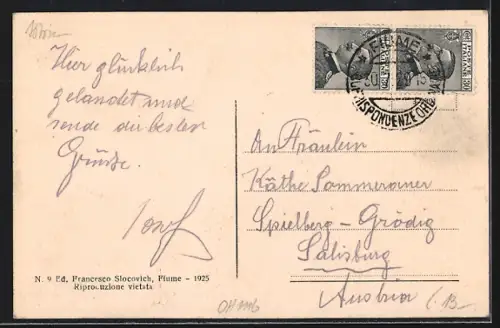 Hier glücklich
gelandet und
sende die besten
Grüsse.
Josef
N. 9 Ed. Francesco Slocovich, Fiume - 1925
Riproduzione vietata
POSTE ITALIANE
FIUME
CORRISPONDENZE
An Fräulein
Käthe Sommerauer
Spielberg - Grödig
Salisburg
Austria